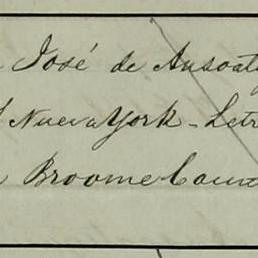 José de Ansoat
Nueva York - Letr
Broome Coun